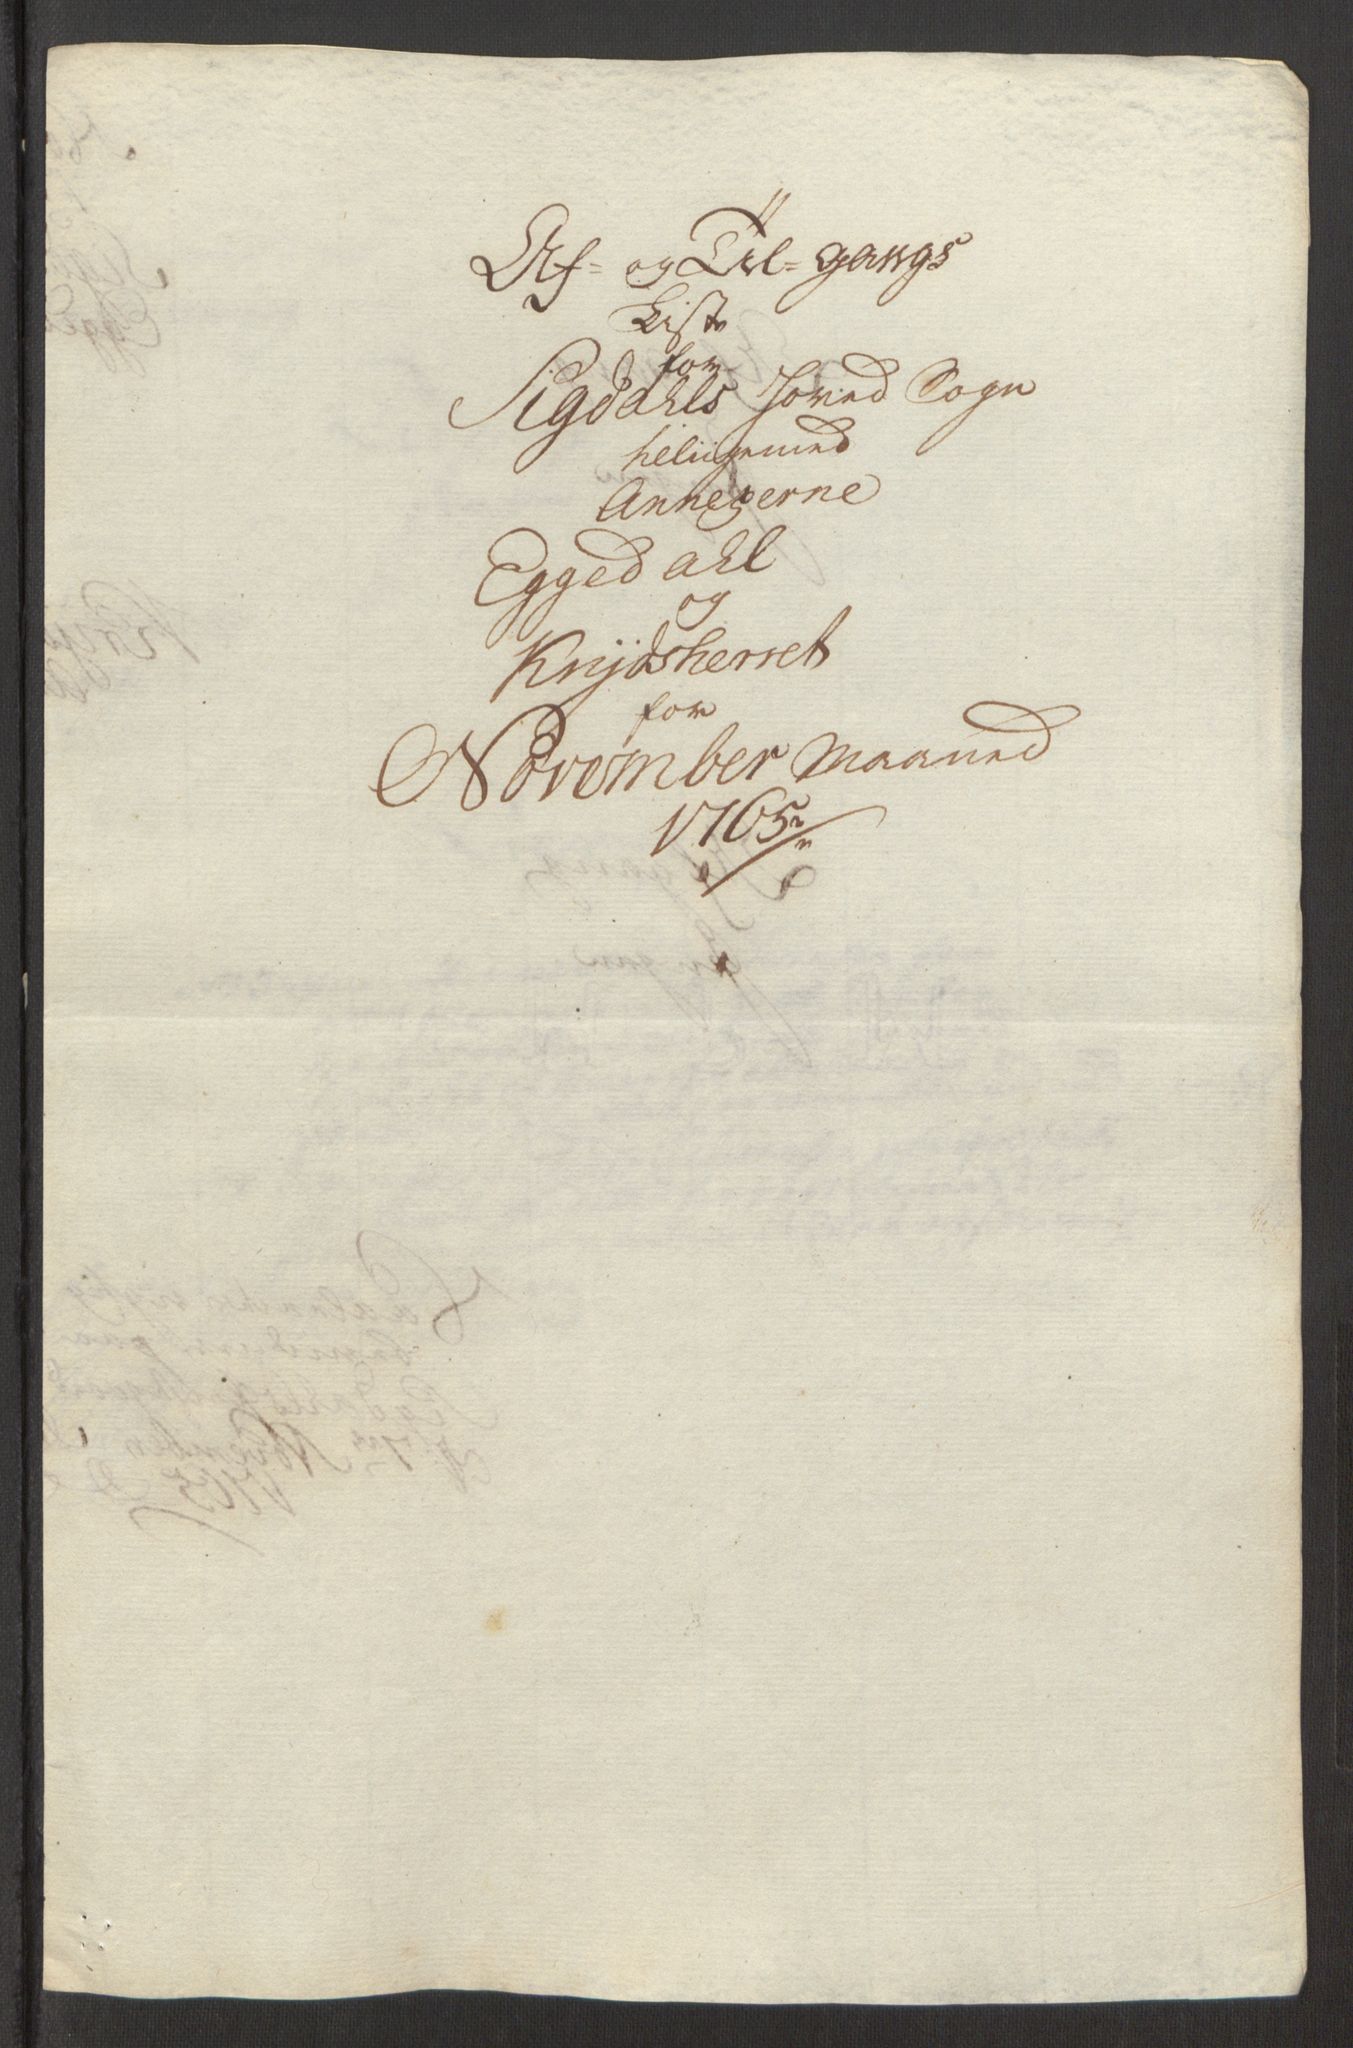 Af- og Til-gangs
Liste
for
Sigdahls Hoved Sogn
Annexerne
Eggedahl
og
Knÿdsherret
for
November Maaned
1765